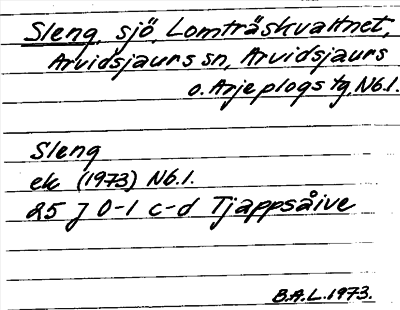 Sleng, sjö, Lomträskvattnet,
Arvidsjaurs sn, Arvidsjaurs
o. Arjeplogs tg, Nb.l.
Sleng
ek (1973) Nb.l.
25 J 0-1 c-d Tjappsåive
B.A.L. 1973.